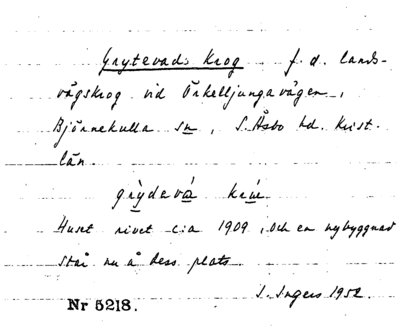 Grytevads Krog f. d. lands-
vägskrog vid Örkelljungavägen,
Björnekulla sn, S. Åsbo hd. Krist.
län.
grydevá krú
Huset rivet c:a 1909, och en nybyggnad
står nu å dess plats.
I. Ingers 1952.
Nr 5218.